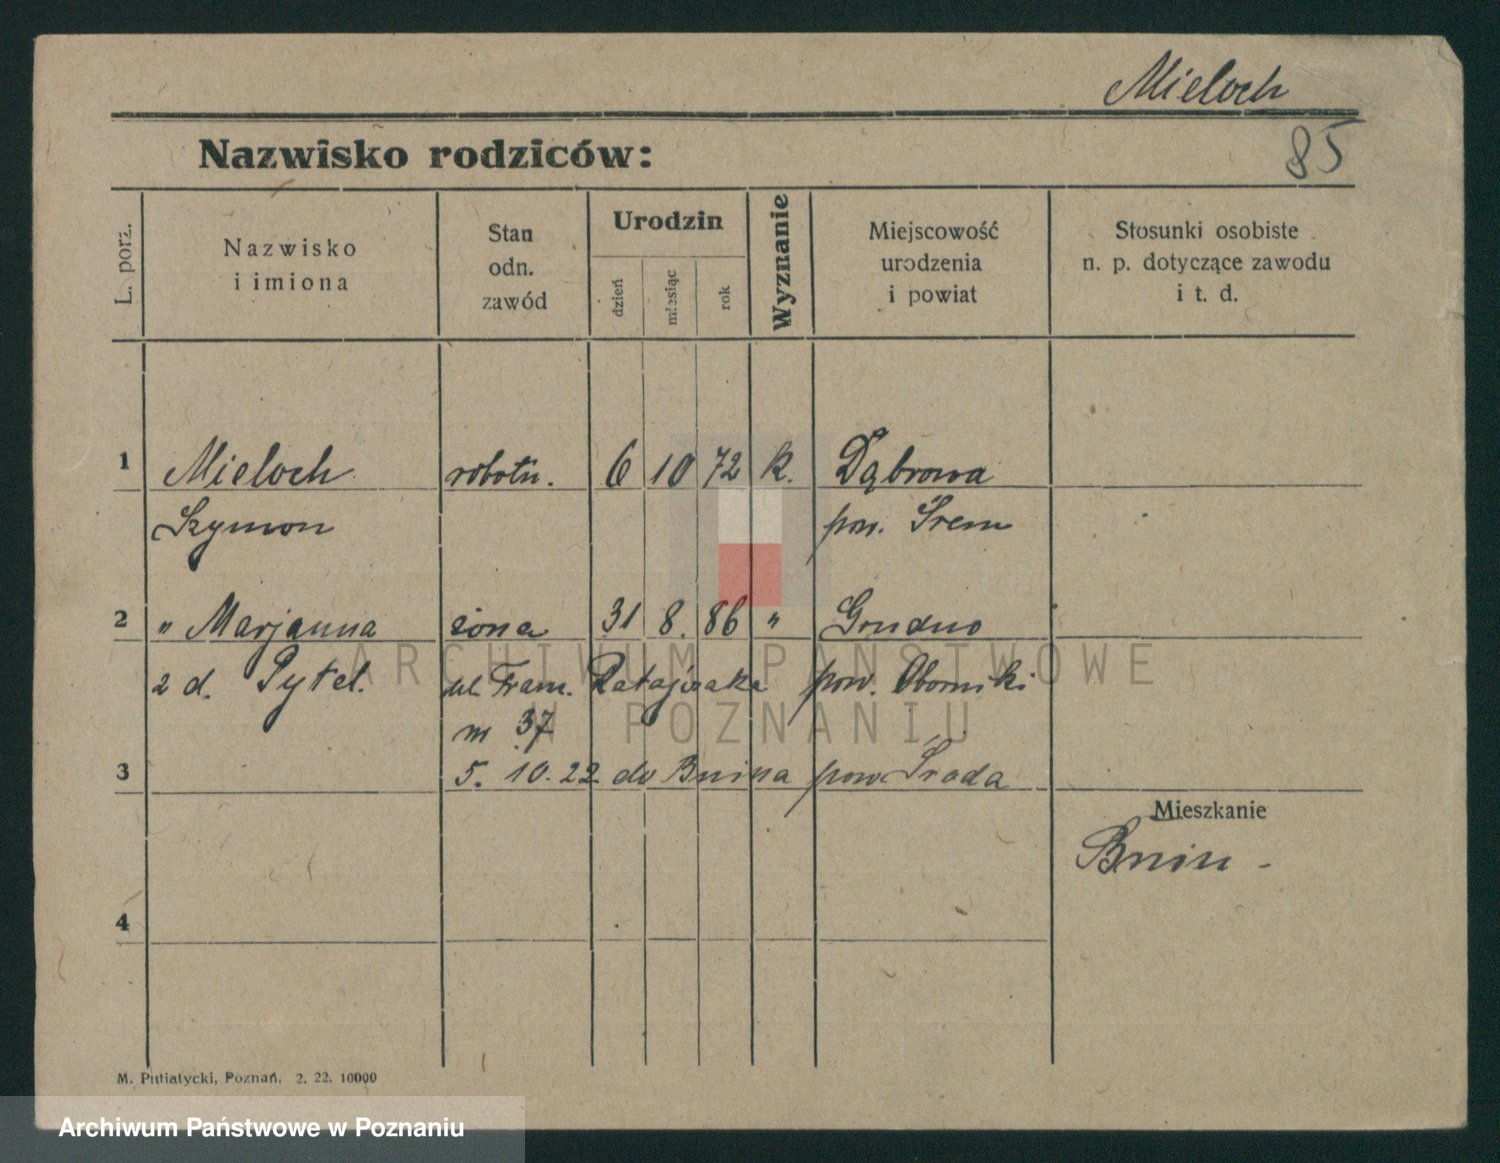 Mieloch
85
Nazwisko rodziców:
L. porz.
Nazwisko
i imiona
Stan
odn.
zawód
Urodzin
dzień
miesiąc
rok
Wyznanie
Miejscowość
urodzenia
i powiat
Stosunki osobiste
n. p. dotyczące zawodu
i t. d.
1 Mieloch robotn. 6 10 72 k. Dąbrowa
Szymon pow. Śrem
2 " Marjanna żona 31 8. 86 " Grudno
z d. Pytel. ul. Fran. Ratajczaka pow. Oborniki
m 37
3 5. 10. 22 do Bnina pow Środa
Mieszkanie
Bnin -
4
M. Putiatycki, Poznań. 2. 22. 10000
ARCHIWUM PAŃSTWOWE
W POZNANIU
Archiwum Państwowe w Poznaniu